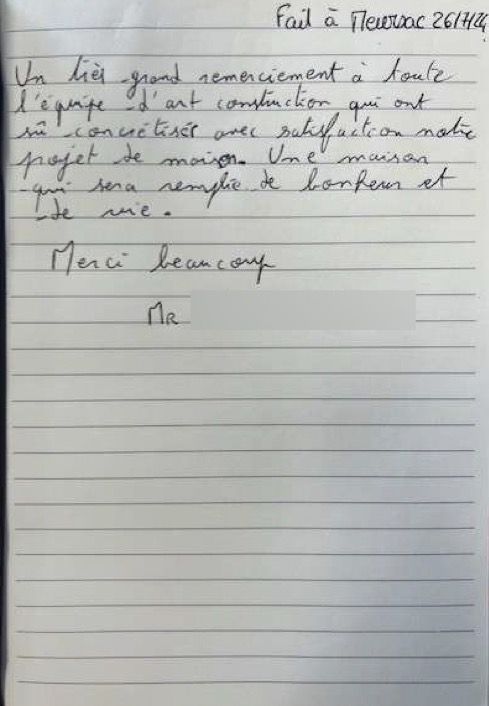 Fait à Meursac 26/7/24
Un très grand remerciement à toute
l'équipe d'art construction qui ont
sû concrétiser avec satisfaction notre
projet de maison. Une maison
qui sera remplie de bonheur et
de vie.
Merci beaucoup
MR